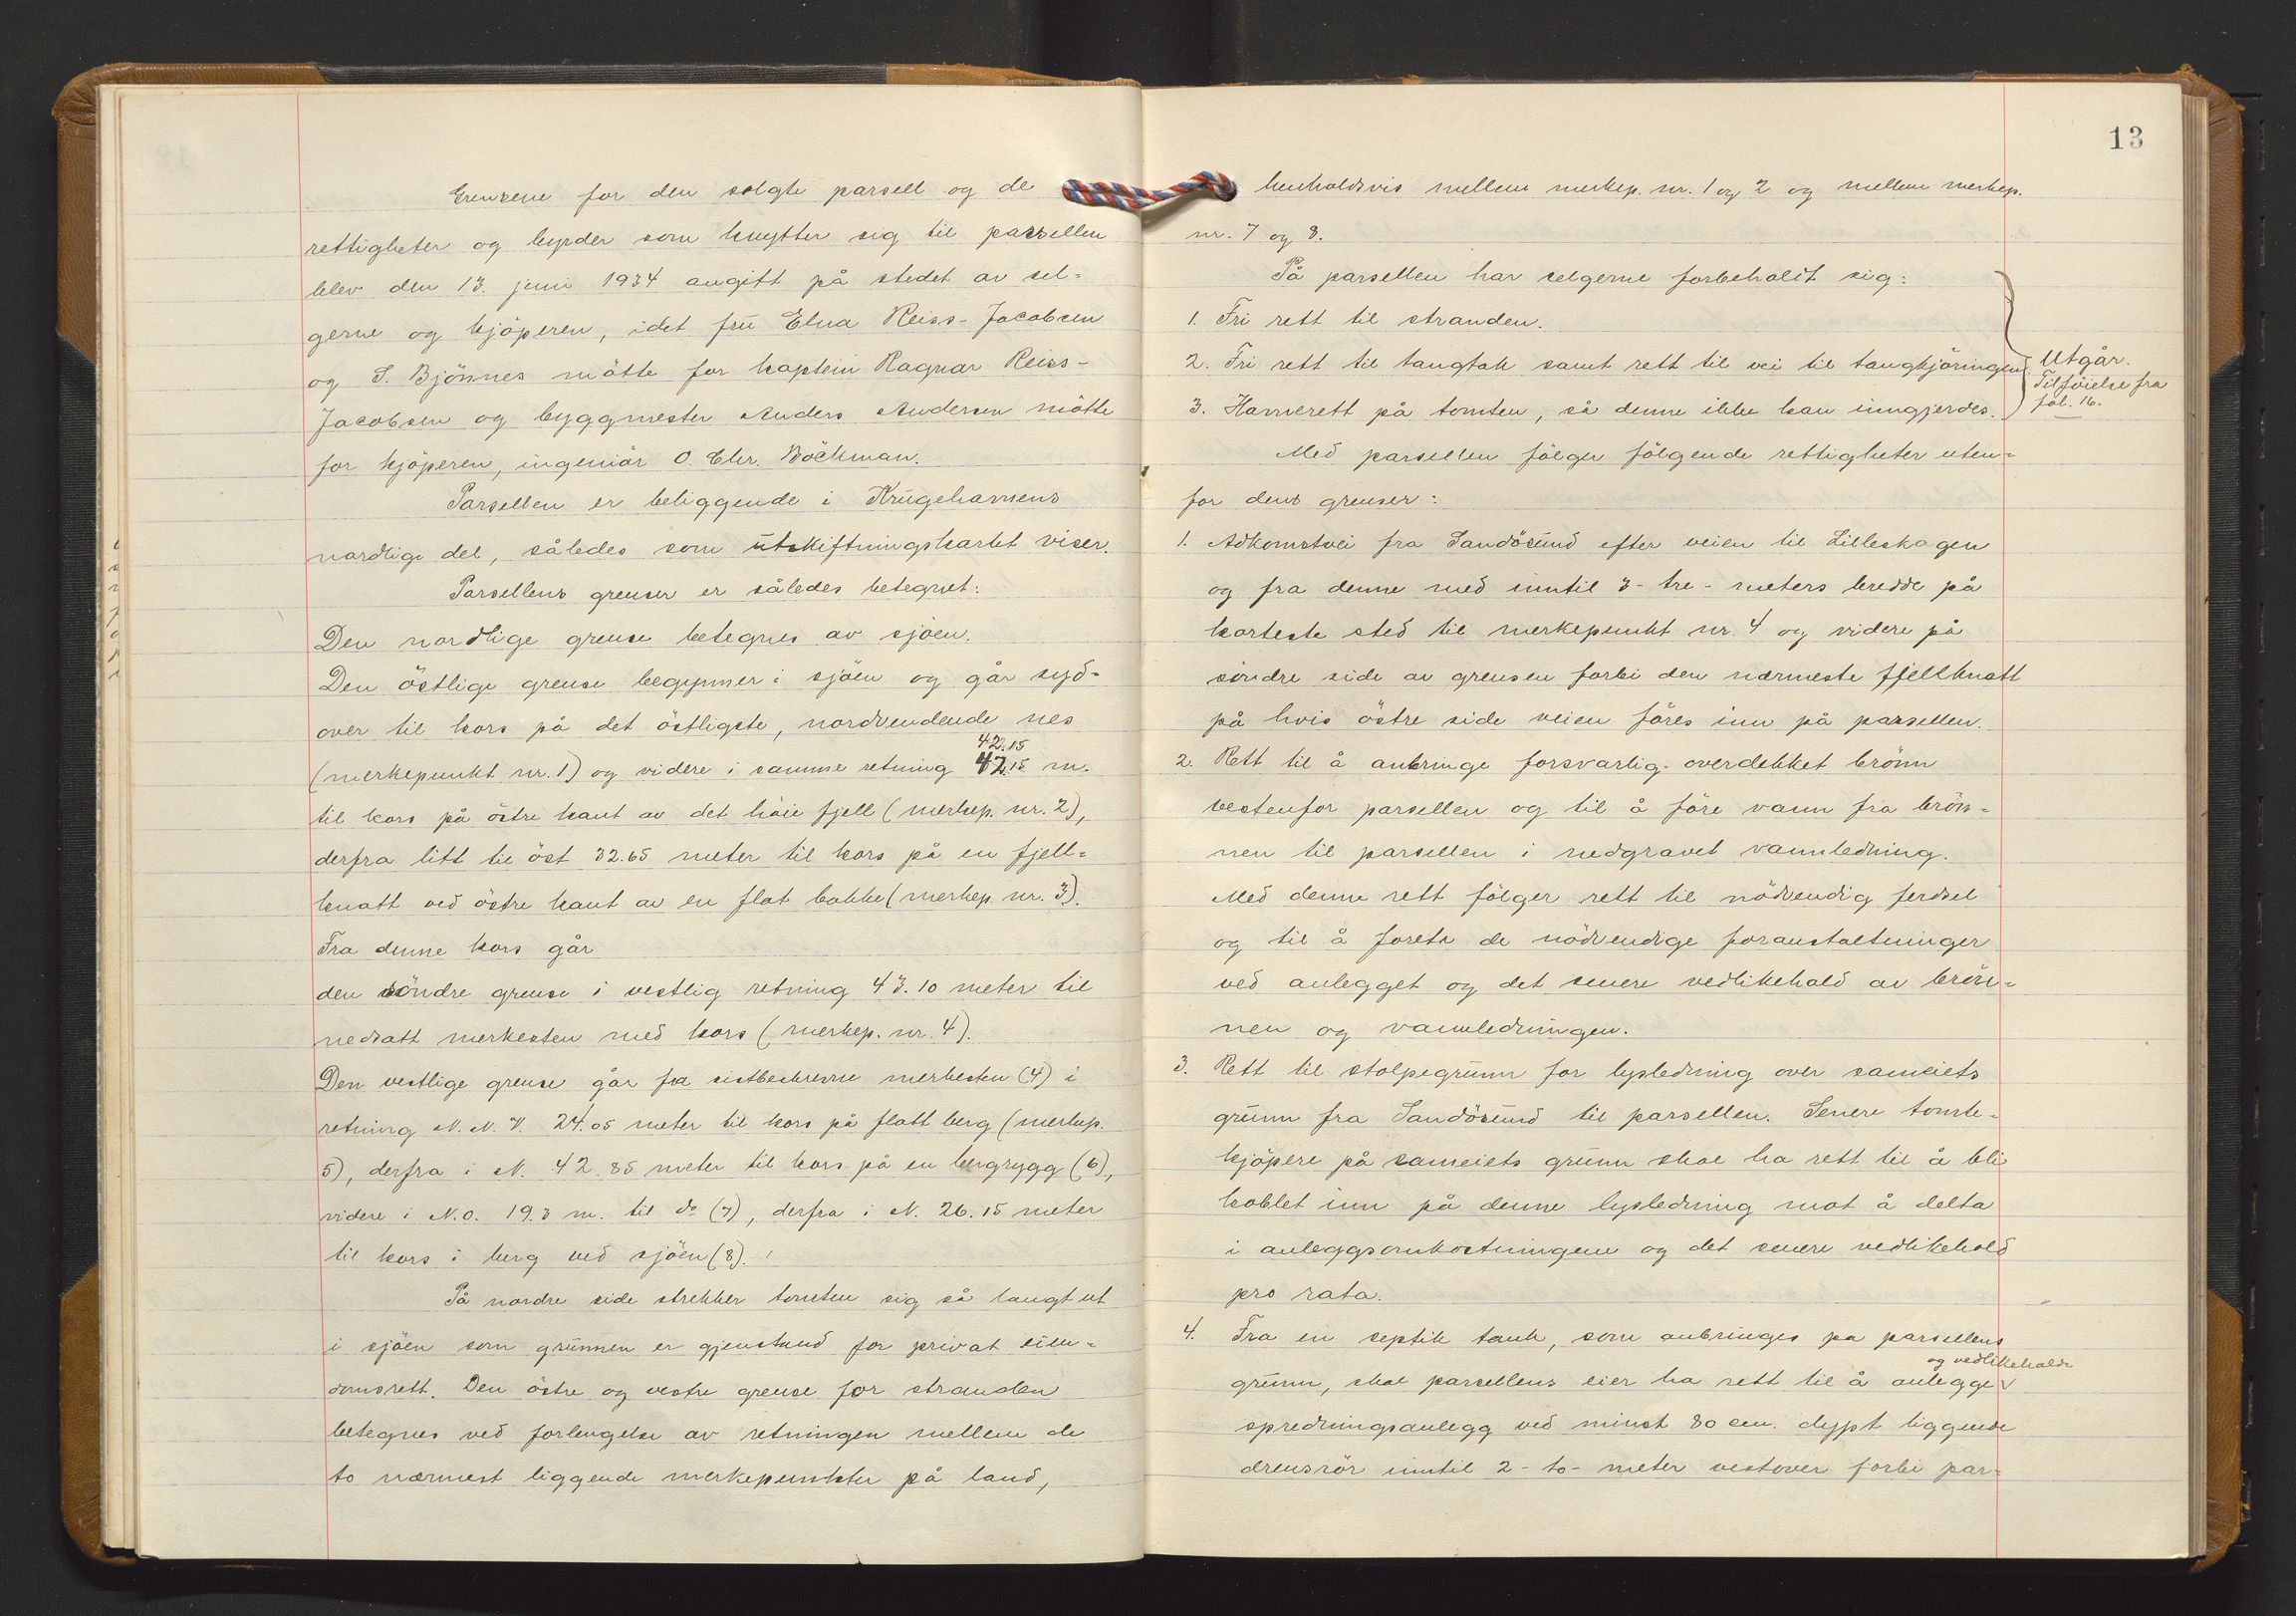 Grensene for den solgte parsell og de
rettigheter og byrder som knytter sig til parsellen
blev den 13. juni 1934 angitt på stedet av sel-
gerne og kjöperen, idet fru Elna Reiss-Jacobsen
og S. Bjönnes mötte for kaptein Ragnar Reiss-
Jacobsen og byggmester Anders Andersen mötte
for kjöperen, ingeniör O. Chr. Böckman.
Parsellen er beliggende i Krugehavnens
nordlige del, således som utskiftningskartet viser.
Parsellens grenser er således betegnet:
Den nordlige grense betegnes av sjöen.
Den östlige grense begynner i sjöen og går syd-
over til kors på det östligste, nordvendende nes
42.15
(merkepunkt nr. 1) og videre i samme retning 42.15 m.
til kors på östre kant av det höie fjell (merkep. nr. 2),
derfra litt til öst 32.65 meter til kors på en fjell-
knatt ved östre kant av en flat bakke (merkep. nr. 3).
Fra denne kors går
den söndre grense i vestlig retning 43.10 meter til
nedsatt merkesten med kors (merkep. nr. 4).
Den vestlige grense går fra sistbeskrevne merkesten (4) i
retning N. N. V. 24.05 meter til kors på flatt berg (merkep.
5), derfra i N. 42.85 meter til kors på en bergrygg (6),
videre i N.O. 19.3 m. til do (7), derfra i N. 26.15 meter
til kors i berg ved sjöen (8).
På nordre side strekker tomten sig så langt ut
i sjöen som grunnen er gjenstand for privat eien-
domsrett. Den östre og vestre grense for stranden
betegnes ved forlengelse av retningen mellem de
to nærmest liggende merkepunkter på land,
13
henholdsvis mellem merkep. nr. 1 og 2 og mellem merkep.
nr. 7 og 8.
På parsellen har selgerne forbeholdt sig:
1. Fri rett til stranden.
2. Fri rett til tangtak samt rett til vei til tangkjöringen
3. Havnerett på tomten, så denne ikke kan inngjerdes.
Utgår.
Tilföielse fra
fol. 16.
Med parsellen fölger fölgende rettigheter uten-
for dens grenser:
1. Adkomstvei fra Sandösund efter veien til Lilleskagen
og fra denne med inntil 3 - tre - meters bredde på
korteste sted til merkepunkt nr. 4 og videre på
söndre side av grensen forbi den nærmeste fjellknatt
på hvis östre side veien föres inn på parsellen.
2. Rett til å anbringe forsvarlig overdekket brönn
vestenfor parsellen og til å före vann fra brön-
nen til parsellen i nedgravet vannledning.
Med denne rett fölger rett til nödvendig ferdsel
og til å foreta de nödvendige foranstaltninger
ved anlegget og det senere vedlikehold av brön-
nen og vannledningen.
3. Rett til stolpegrunn for lysledning over sameiets
grunn fra Sandösund til parsellen. Senere tomte-
kjöpere på sameiets grunn skal ha rett til å bli
koblet inn på denne lysledning mot å delta
i anleggsomkostningene og det senere vedlikehold
pro rata.
4. Fra en septik tank, som anbringes på parsellens
og vedlikeholde
grunn, skal parsellens eier ha rett til å anlegge v
spredningsanlegg ved minst 80 cm. dypt liggende
drensrör inntil 2 - to - meter vestover forbi par-